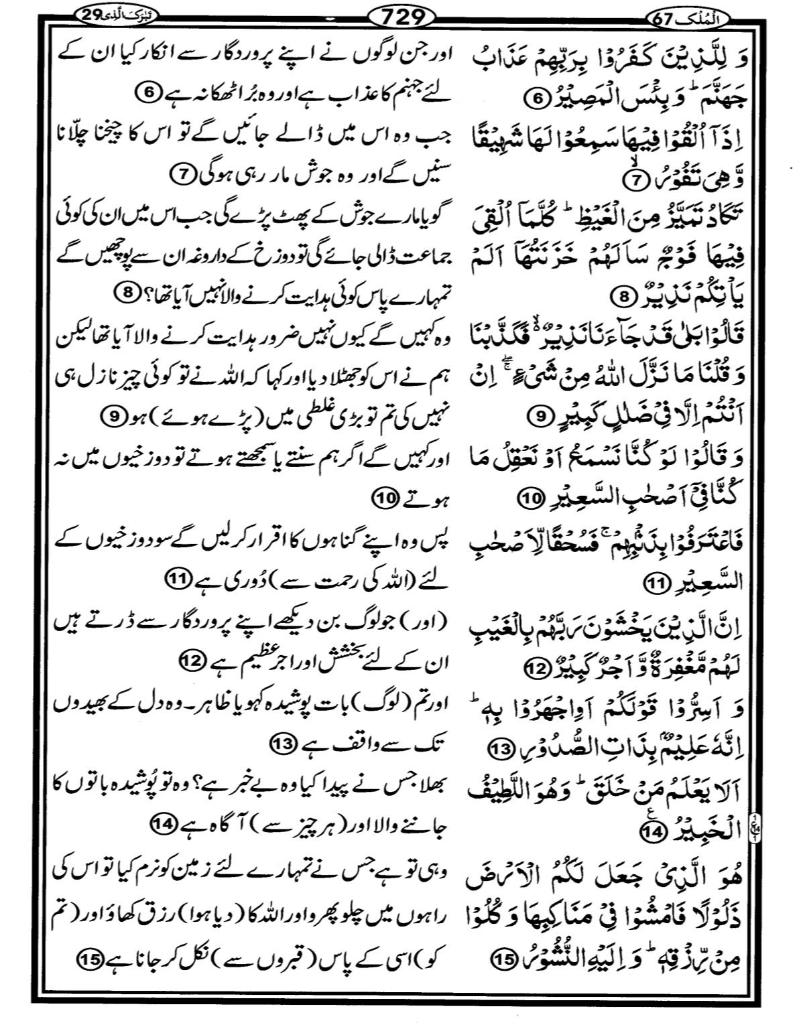 الْمُلْک 67
729
تَبٰرَکَ الَّذِیْ 29
وَ لِلَّذِیْنَ کَفَرُوْا بِرَبِّهِمْ عَذَابُ
جَهَنَّمَ ؕ وَ بِئْسَ الْمَصِیْرُ 6
اِذَاۤ اُلْقُوْا فِیْهَا سَمِعُوْا لَهَا شَهِیْقًا
وَّ هِیَ تَفُوْرُ ۙ 7
تَکَادُ تَمَیَّزُ مِنَ الْغَیْظِ ؕ کُلَّمَاۤ اُلْقِیَ
فِیْهَا فَوْجٌ سَاَلَهُمْ خَزَنَتُهَاۤ اَلَمْ
یَاْتِکُمْ نَذِیْرٌ 8
قَالُوْا بَلٰی قَدْ جَآءَنَا نَذِیْرٌ ۙ۬ فَکَذَّبْنَا
وَ قُلْنَا مَا نَزَّلَ اللّٰهُ مِنْ شَیْءٍ ۚۖ اِنْ
اَنْتُمْ اِلَّا فِیْ ضَلٰلٍ کَبِیْرٍ 9
وَ قَالُوْا لَوْ کُنَّا نَسْمَعُ اَوْ نَعْقِلُ مَا
کُنَّا فِیْۤ اَصْحٰبِ السَّعِیْرِ 10
فَاعْتَرَفُوْا بِذَنْۢبِهِمْ ۚ فَسُحْقًا لِّاَصْحٰبِ
السَّعِیْرِ 11
اِنَّ الَّذِیْنَ یَخْشَوْنَ رَبَّهُمْ بِالْغَیْبِ
لَهُمْ مَّغْفِرَةٌ وَّ اَجْرٌ کَبِیْرٌ 12
وَ اَسِرُّوْا قَوْلَکُمْ اَوِ اجْهَرُوْا بِهٖ ؕ
اِنَّهٗ عَلِیْمٌۢ بِذَاتِ الصُّدُوْرِ 13
اَلَا یَعْلَمُ مَنْ خَلَقَ ؕ وَ هُوَ اللَّطِیْفُ
الْخَبِیْرُ 14 ع
هُوَ الَّذِیْ جَعَلَ لَکُمُ الْاَرْضَ
ذَلُوْلًا فَامْشُوْا فِیْ مَنَاکِبِهَا وَ کُلُوْا
مِنْ رِّزْقِهٖ ؕ وَ اِلَیْهِ النُّشُوْرُ 15
اور جن لوگوں نے اپنے پروردگار سے انکار کیا ان کے
لئے جہنم کا عذاب ہے اور وہ بُرا ٹھکانہ ہے 6
جب وہ اس میں ڈالے جائیں گے تو اس کا چیخنا چلّانا
سنیں گے اور وہ جوش مار رہی ہوگی 7
گویا مارے جوش کے پھٹ پڑے گی جب اس میں ان کی کوئی
جماعت ڈالی جائے گی تو دوزخ کے داروغہ ان سے پوچھیں گے
تمہارے پاس کوئی ہدایت کرنے والا نہیں آیا تھا؟ 8
وہ کہیں گے کیوں نہیں ضرور ہدایت کرنے والا آیا تھا لیکن
ہم نے اس کو جھٹلا دیا اور کہا کہ اللہ نے تو کوئی چیز نازل ہی
نہیں کی تم تو بڑی غلطی میں (پڑے ہوئے) ہو 9
اور کہیں گے اگر ہم سنتے یا سمجھتے ہوتے تو دوزخیوں میں نہ
ہوتے 10
پس وہ اپنے گناہوں کا اقرار کر لیں گے سو دوزخیوں کے
لئے (اللہ کی رحمت سے) دُوری ہے 11
(اور) جو لوگ بن دیکھے اپنے پروردگار سے ڈرتے ہیں
ان کے لئے بخشش اور اجر عظیم ہے 12
اور تم (لوگ) بات پوشیدہ کہو یا ظاہر۔ وہ دل کے بھیدوں
تک سے واقف ہے 13
بھلا جس نے پیدا کیا وہ بے خبر ہے؟ وہ تو پُوشیدہ باتوں کا
جاننے والا اور (ہر چیز سے) آگاہ ہے 14
وہی تو ہے جس نے تمہارے لئے زمین کو نرم کیا تو اس کی
راہوں میں چلو پھرو اور اللہ کا (دیا ہوا) رزق کھاؤ اور (تم
کو) اسی کے پاس (قبروں سے) نکل کر جانا ہے 15